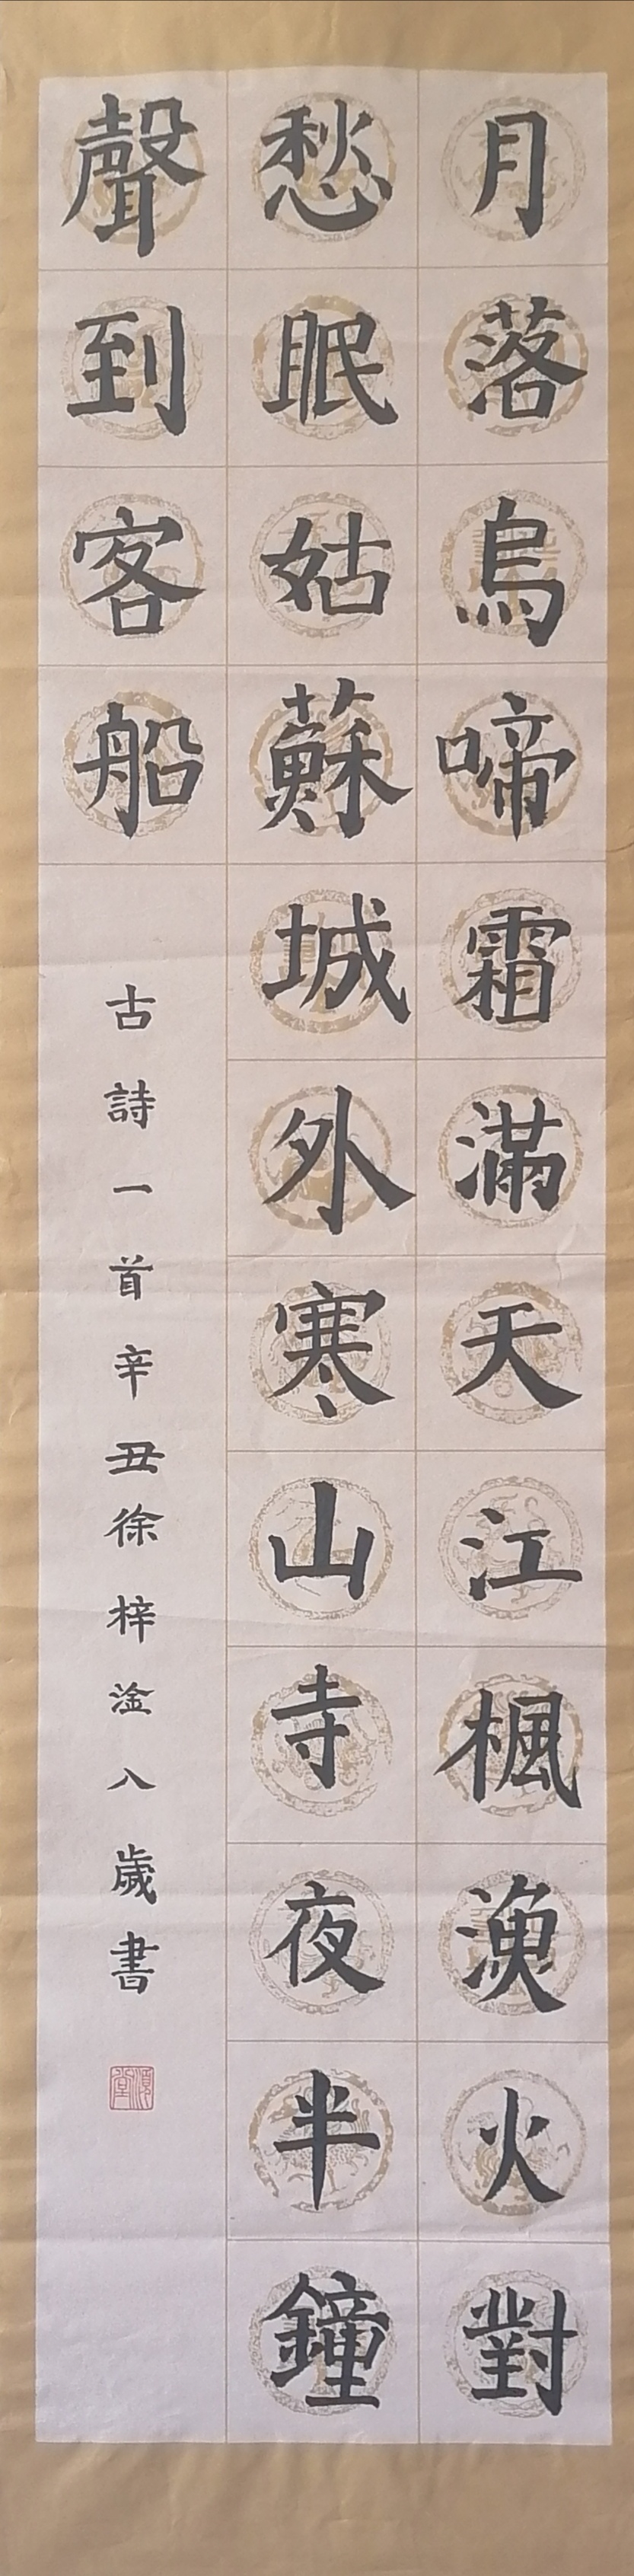 月落烏啼霜滿天江楓漁火對
愁眠姑蘇城外寒山寺夜半鐘
聲到客船
古詩一首辛丑徐梓淦八歲書